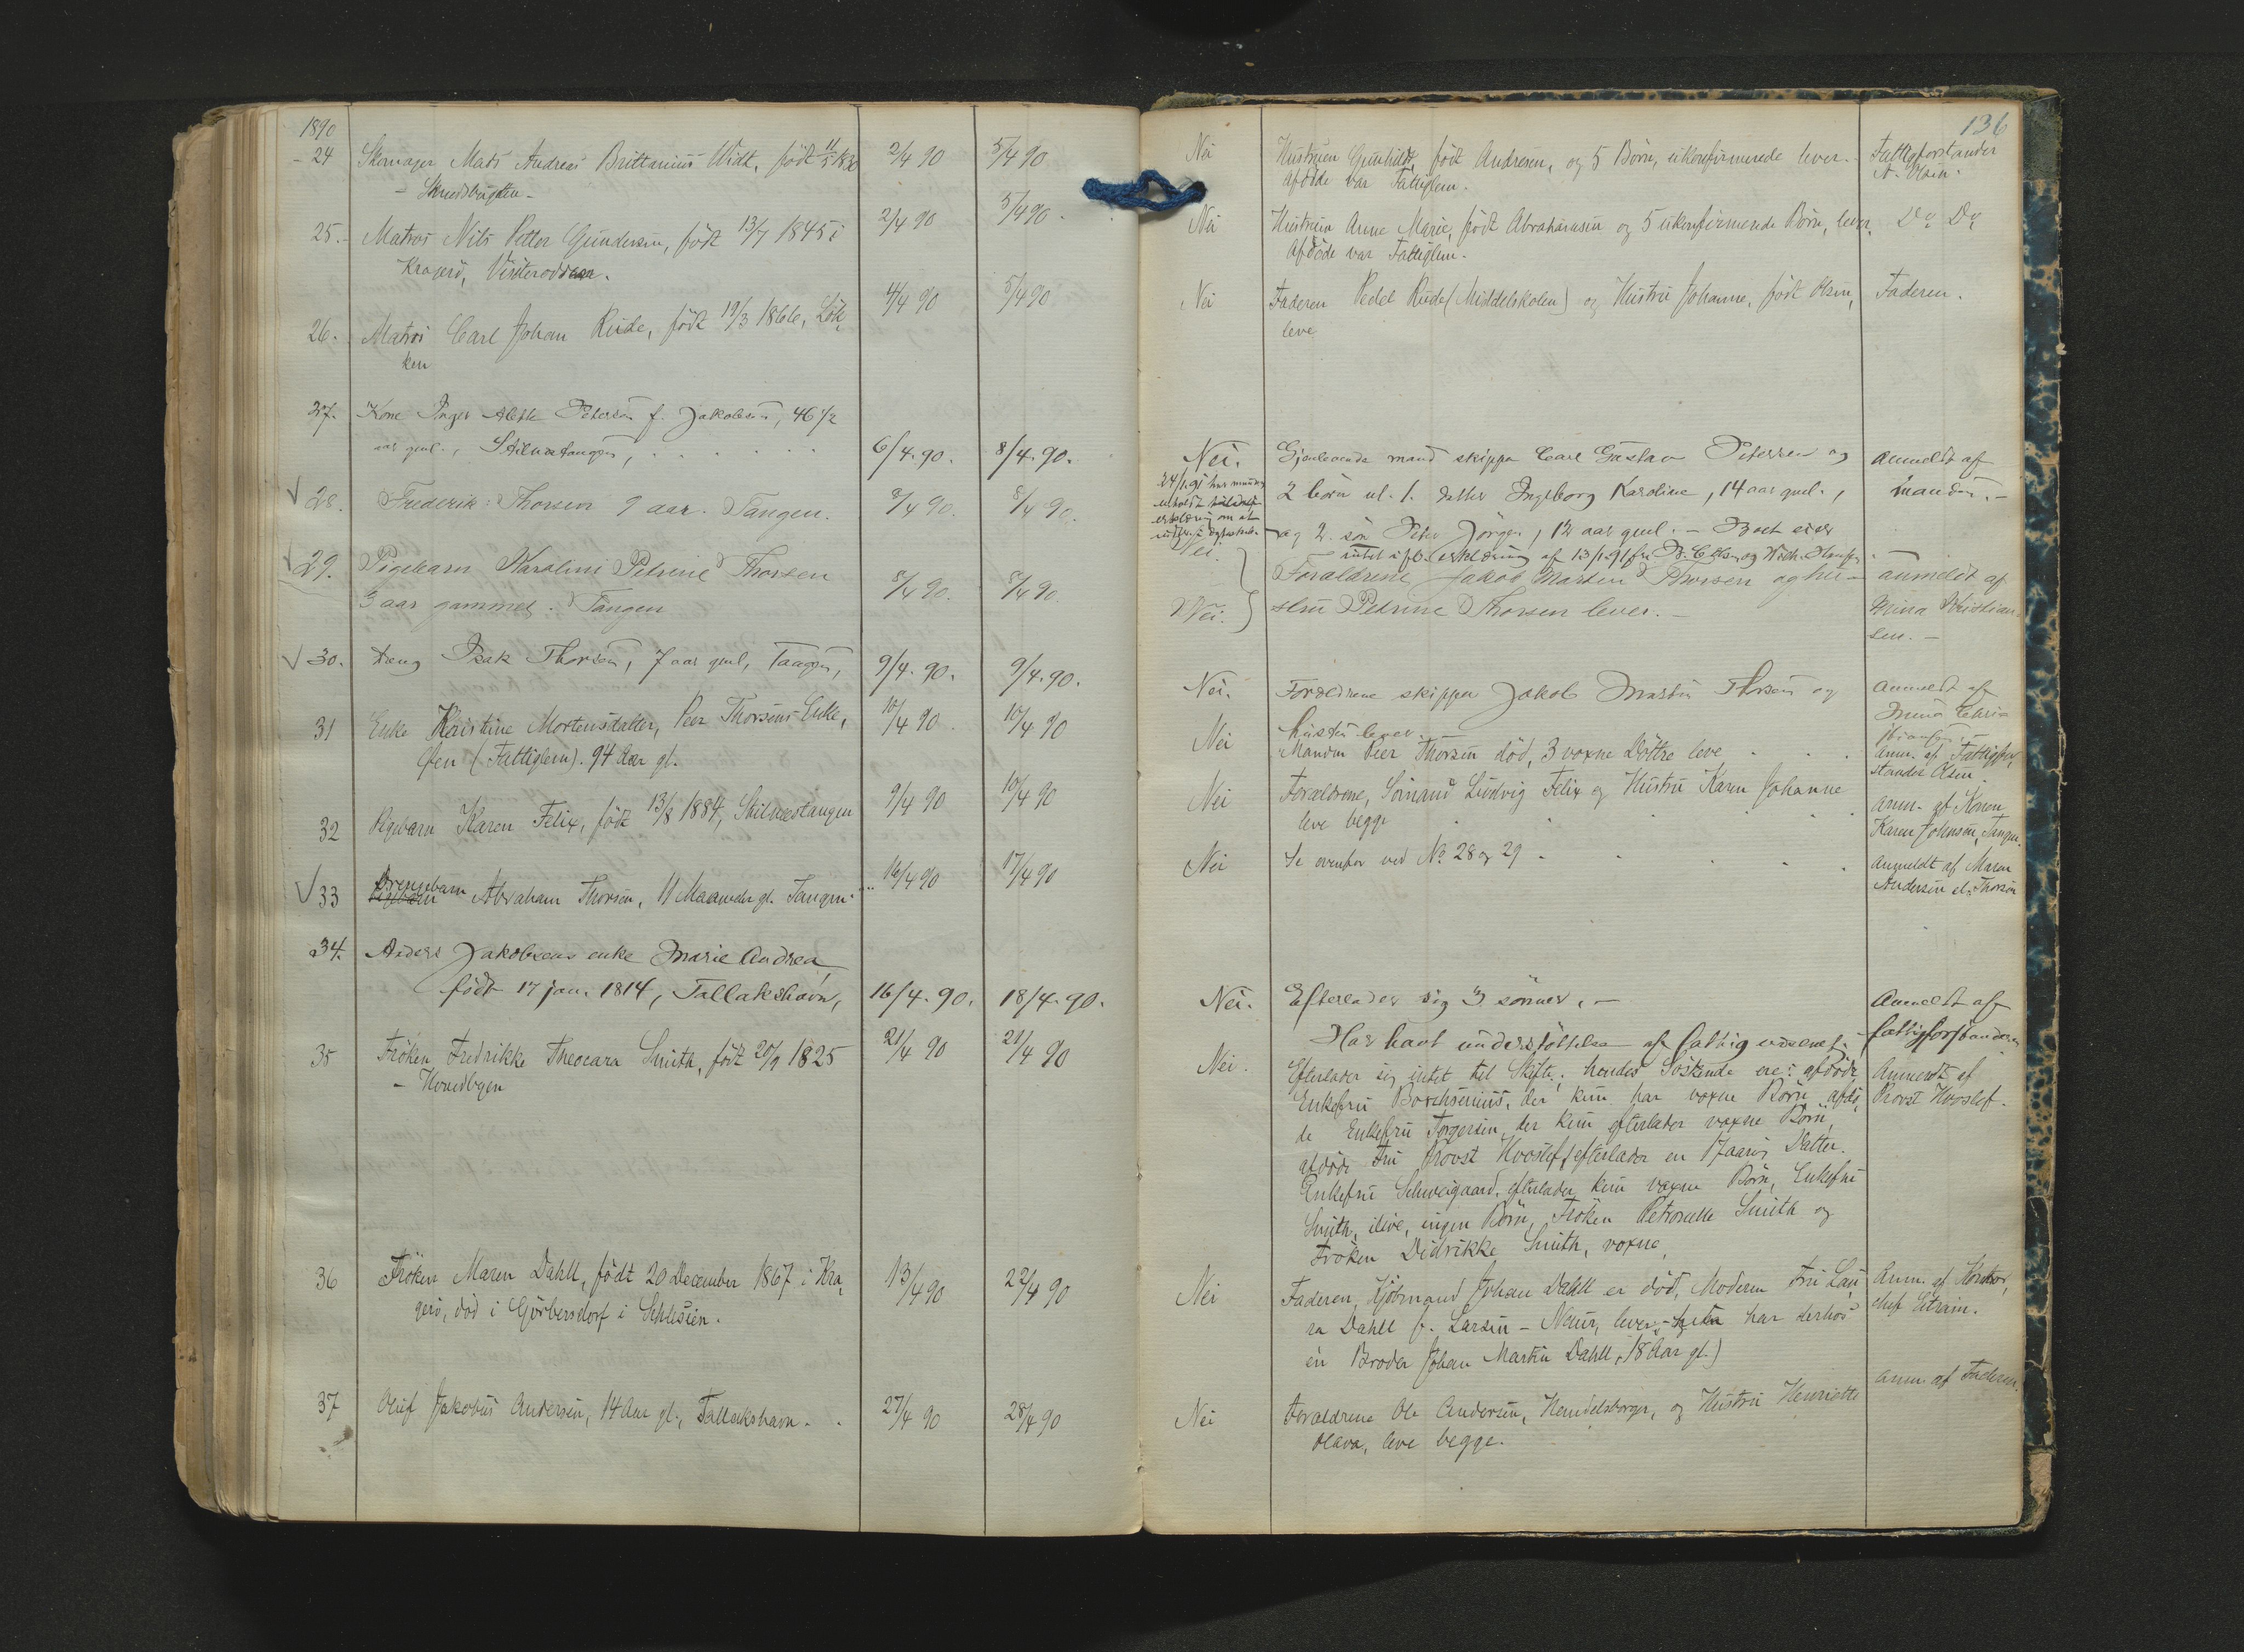 1890
136
24 Skomager Mads Andreas Brittanius Widt, født 11/5 1830 2/4 90 5/4 90
- Skrubbugten -
Nei Hustruen Gunhild, født Andresen, og 5 Børn, ukonfirmerede lever. - Fattigforstander
Afdøde var Fattiglem. A. Olsen.
25. Matros Nils Petter Gundersen, født 13/7 1845 i 2/4 90 5/4 90.
Kragerø, Vesterodden.
Nei Hustruen Anne Marie, født Abrahamsen og 5 ukonfirmerede Børn, lever. Do Do
Afdøde var Fattiglem.
26. Matros Carl Johan Rude, født 19/3 1866, Løk 4/4 90 5/4 90
ken
Nei Faderen Pedel Rude (Middelskolen) og Hustru Johanne, født Olsen, Faderen.
leve
27. Kone Inger Alette Petersen f. Jakobsen, 46 1/2
aar gml., Stilnestangen, 6/4. 90. 8/4. 90.
Nei. Gjenlevende mand skipper Carl Gustav Petersen og Anmeldt af
2 børn nl. 1. datter Ingeborg Karoline, 14 aar gml., manden. -
og 2. søn Peter Jørgen, 12 aar gml. - Boet eier
intet ifb. erklæring af 13/1-91 fra
24/1.91 har manden
erklæring om at
28. Frederik Thorsen 9 aar. Tangen. 8/4 90. 8/4 90.
Nei.
29. Pigebarn Karoline Petrine Thorsen
3 aar gammel. Tangen 8/4 90. 8/4 90.
Forældrene Jakob Martin Thorsen og hu- anmeldt af
Nei. stru Petrine Thorsen lever. - Mina Kristian-
sen. -
30. Dreng Isak Thorsen, 7 aar gml, Tangen, 9/4. 90. 9/4. 90.
Nei. Forældrene skipper Jakob Martin Thorsen og Anmeldt af
hustru lever. - Mina Chri-
stiansen. -
31 Enke Kristine Mortensdatter, Peer Thorsens Enke, 10/4 90. 10/4 90
Øen (Fattiglem). 94 Aar gl.
Nei Manden Peer Thorsen død, 3 voxne Døttre leve anm. af Fattigfor
stander Olsen.
32 Pigebarn Karen Felix, født 13/8 1884, Stilnestangen 9/4 90 10/4 90
Nei Forældrene, Sømand Ludvig Felix og Hustru Karen Johanne anm. af Konen
leve begge Karen Johnsen, Tangen.
33 Drengebarn
Pigebarn Abraham Thorsen, 11 Maaneder gl. Tangen 16/4 90 17/4 90
Nei Se ovenfor ved No 28 og 29 - Anmeldt af Maren
Andersen el. Thorsen
34. Anders Jakobsens enke Marie Andrea,
født 17 jan. 1814, Tallakshavn, 16/4. 90. 18/4. 90.
Nei. Efterlader sig 3 sønner. - Anmeldt af
Har havt understøttelse af fattigvæsenet. - fattigforstanderen
35 Frøken Fredrikke Theocara Smith, født 20/9 1825 21/4 90 21/4 90
- Hovedbyen
Nei. Efterlader sig intet til Skifte; hendes Søskende ere: afdøde Anmeldt af
Enkefru Borchsenius, der kun har voxne Børn, afdø Provst Hvoslef.
de Enkefru Torgersen, der kun efterlader voxne Børn,
afdøde Fru Provst Hvoslef, efterlader en 17aarig Datter.
Enkefru Schweigaard, efterlader kun voxne Børn, Enkefru
Smith, ilive, ingen Børn, Frøken Petronelle Smith og
Frøken Didrikke Smith, voxne,
36 Frøken Maren Dahll, født 20 December 1867 i Kra 13/4 90 22/4 90
gerø, død i Görbersdorf i Schlesien.
Nei Faderen, Kjøbmand Johan Dahll er død, Moderen Fru Lau Anm. af Kontor
ra Dahll f. Larsen - Neuer, lever, - har derhos chef Strain.
en Broder Johan Martin Dahll, 18 Aar gl.)
37 Oluf Jakobus Andersen, 14 Aar gl., Tallakshavn. 27/4 90 28/4 90
Nei Forældrene Ole Andersen, Handelsborger, og Hustru Henriette Anm. af Faderen.
Olava, leve begge.